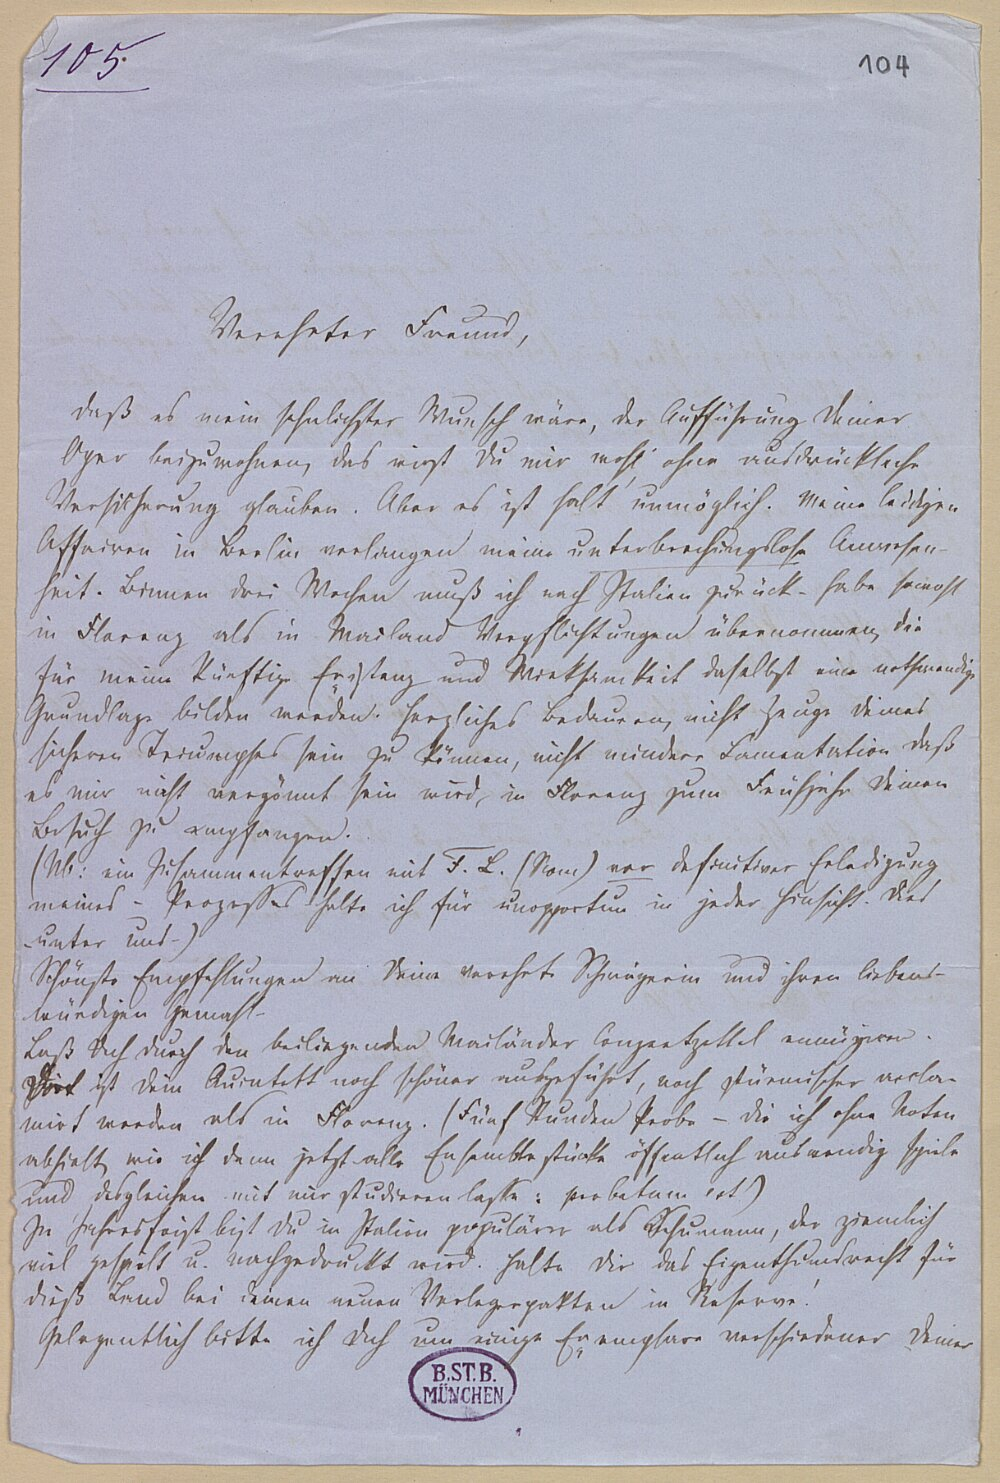 105.
104
Verehrter Freund,
daß es mein sehnlichster Wunsch wäre, der Aufführung Deiner
Oper beizuwohnen, das wirst Du mir wohl ohne ausdrückliche
Versicherung glauben. Aber es ist halt unmöglich. Meine leidigen
Affairen in Berlin verlangen meine unterbrechungslose Anwesen-
heit. Binnen drei Wochen muß ich nach Italien zurück - habe sowohl
in Florenz als in Mailand Verpflichtungen übernommen, die
für meine künftige Existenz und Wirksamkeit daselbst eine nothwendige
Grundlage bilden werden. Herzliches Bedauern, nicht Zeuge Deines
sicheren Triumphes sein zu können, nicht mindere Lamentation daß
es mir nicht vergönnt sein wird, in Florenz zum Frühjahr Deinen
Besuch zu empfangen.
(Nb: ein Zusammentreffen mit F. L. (Rom) vor definitiver Erledigung
meines - Prozesses halte ich für inopportun in jeder Hinsicht. Dies
unter uns-)
Schönste Empfehlungen an Deine verehrte Schwägerin und ihren liebens-
würdigen Gemahl-
Laß Dich durch den beiliegenden Mailänder Conzertzettel ennüyiren.
Dort ist Dein Quintett noch schöner ausgeführt, noch stürmischer accla-
mirt worden als in Florenz. (Fünf Stunden Probe - die ich ohne Noten
abhielt, wie ich denn jetzt alle Ensemblestücke öffentlich auswendig spiele
und desgleichen mit mir studieren lasse: probatum est)
In Jahresfrist bist Du in Italien populärer als Schumann, der ziemlich
viel gespielt u. nachgedruckt wird. Halte Dir das Eigenthumsrecht für
dieß Land bei Deinen neuen Verlegerpakten in Reserve!
Gelegentlich bitte ich Dich um einige Exemplare verschiedener Deiner
B.ST.B.
MÜNCHEN